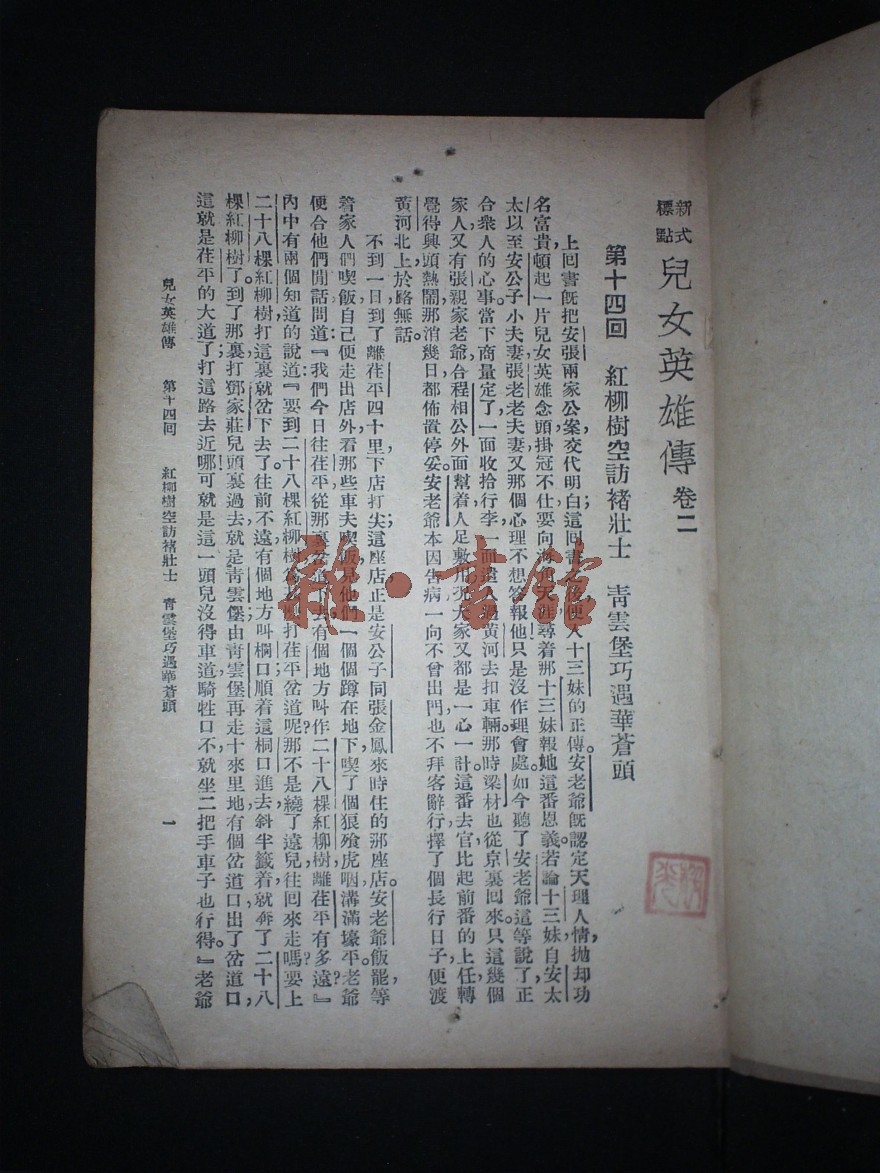 新式標點 兒女英雄傳 卷二
第十四回 紅柳樹空訪褚壯士 青雲堡巧遇華蒼頭
上回書既把安張兩家公案交代明白；這回書便入十三妹的正傳。安老爺既認定天理人情，拋却功
名富貴，頓起一片兒女英雄念頭，掛冠不仕，要向海角天涯尋着那十三妹，報她這番恩義。若論十三妹，自安太
太以至安公子小夫妻張老老夫妻，又那個心理不想答報他！只是沒作理會處。如今聽了安老爺這等說了，正
合衆人的心事，當下商量定了，一面收拾行李，一面遣人過黃河去扣車輛。那時梁材也從京裏回來，只這幾個
家人，又有張親家老爺，合程相公外面幫着，人足敷用，況大家又都是一心一計，這番去官比起前番的上任轉
覺得興頭熱鬧，那消幾日都佈置停妥。安老爺本因告病，一向不曾出門，也不拜客辭行，擇了個長行日子，便渡
黃河北上，於路無話。
不到一日，到了離茌平四十里，下店打尖；這座店正是安公子同張金鳳來時住的那座店。安老爺飯罷，等
着家人們喫飯，自己便走出店外，看那些車夫喫飯，見他們一個個蹲在地下，喫了個狼飧虎咽，溝滿壕平。老爺
便合他們閒話，問道：『我們今日往茌平，從那裏岔道下去，有個地方叫作二十八棵紅柳樹，離茌平有多遠？』
內中有兩個知道的說道：『要到二十八棵紅柳樹，怎麼打茌平岔道呢？那不是繞了遠兒往回來走嗎？要上
二十八棵紅柳樹，打這裏就岔下去了。往前不遠，有個地方叫桐口，順着這桐口進去，斜半籤着，就奔了二十八
棵紅柳樹了。到了那裏，打鄧家莊兒頭裏過去，就是青雲堡，由青雲堡再走十來里地，有個岔道口，出了岔道口，
這就是茌平的大道了；打這路去近哪！可就是這一頭兒沒得車道，騎牲口，不就坐二把手車子也行得。』老爺
兒女英雄傳 第十四回 紅柳樹空訪褚壯士 青雲堡巧遇華蒼頭 一
雜·書館